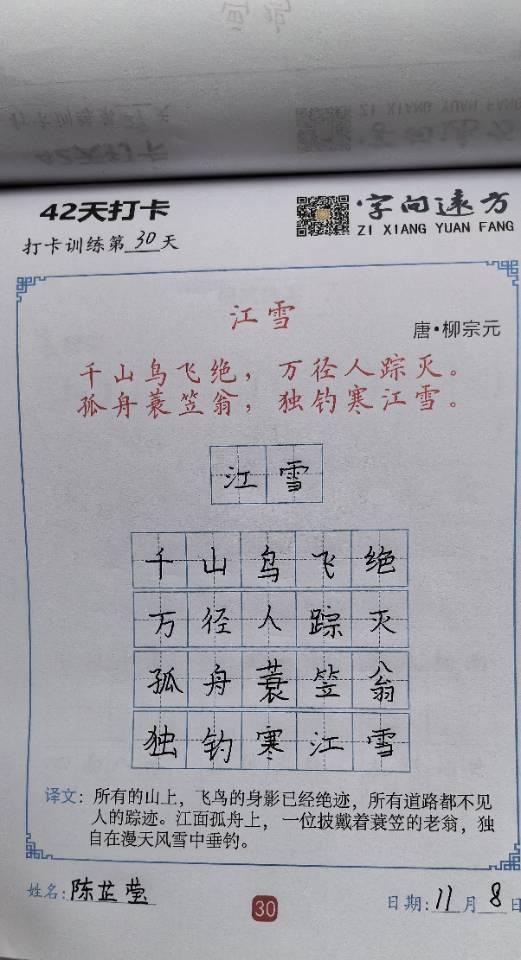 42天打卡
字向远方
ZI XIANG YUAN FANG
打卡训练第30天
江雪
唐·柳宗元
千山鸟飞绝，万径人踪灭。
孤舟蓑笠翁，独钓寒江雪。
江雪
千山鸟飞绝
万径人踪灭
孤舟蓑笠翁
独钓寒江雪
译文：所有的山上，飞鸟的身影已经绝迹，所有道路都不见
人的踪迹。江面孤舟上，一位披戴着蓑笠的老翁，独
自在漫天风雪中垂钓。
姓名：陈芷莹
30
日期：11月8日